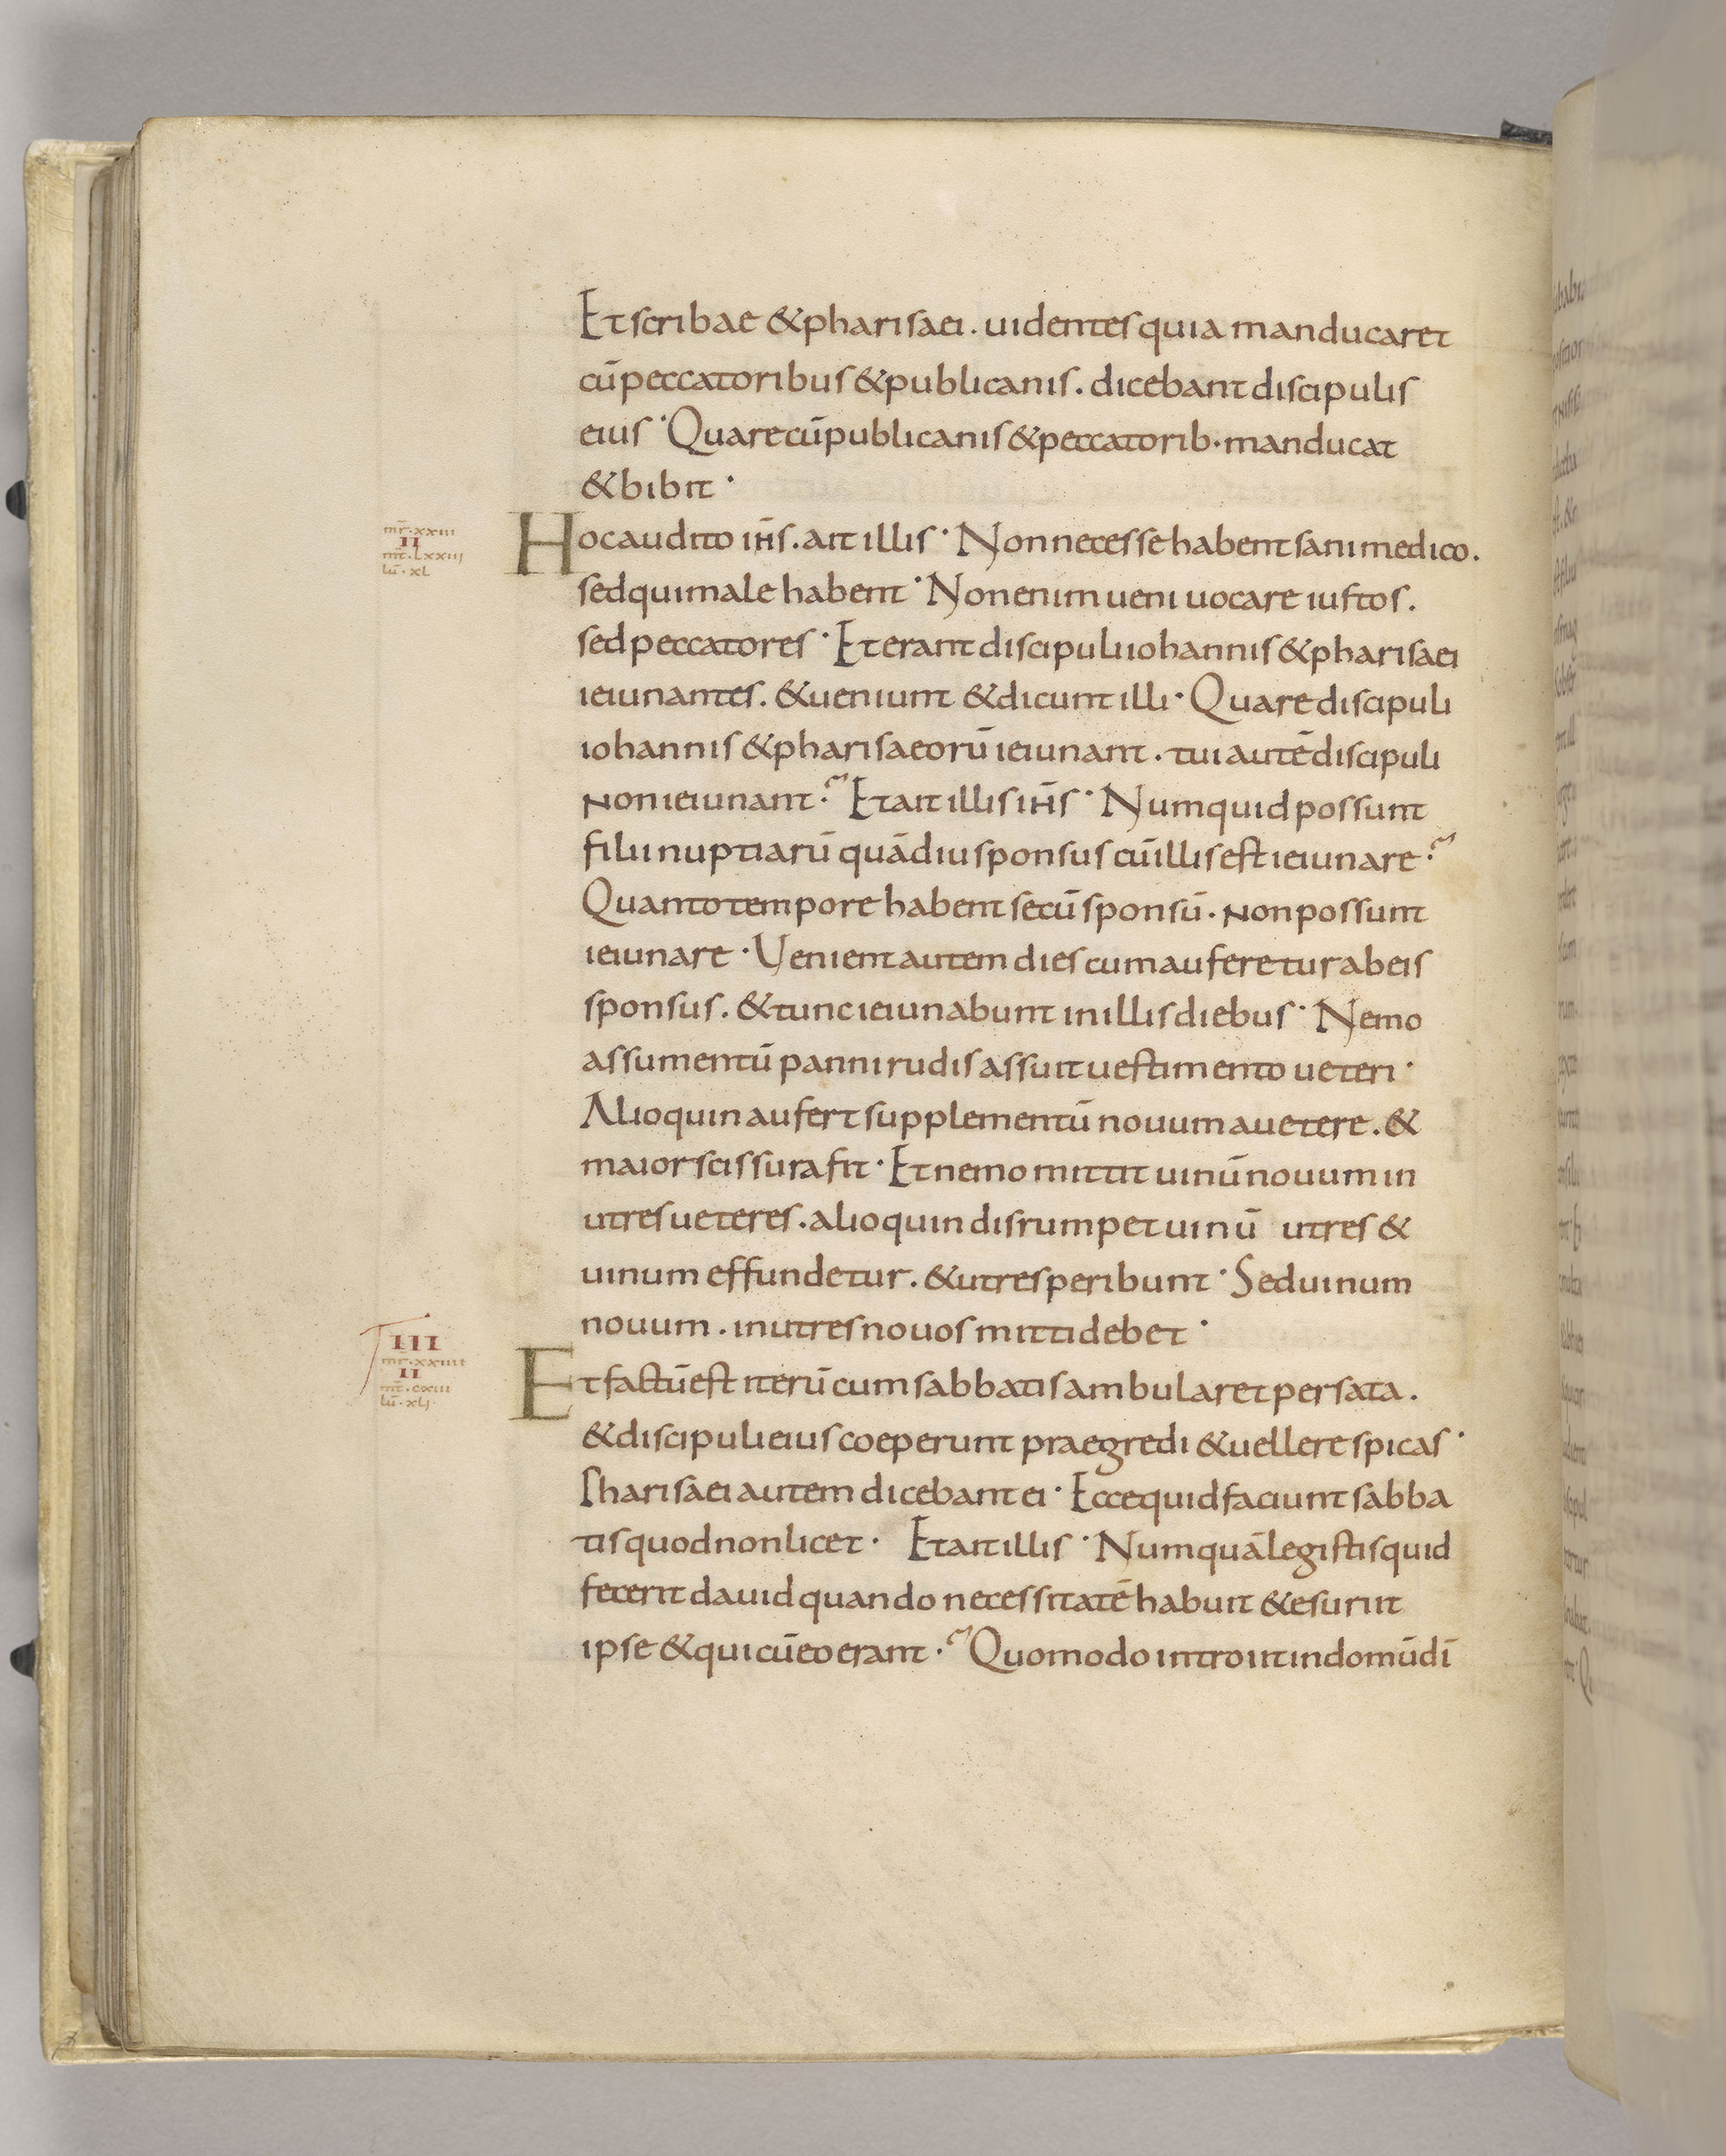 Et scribae & pharisaei. uidentes quia manducaret
cū peccatoribus & publicanis. dicebant discipulis
eius · Quare cū publicanis & peccatorib· manducat
& bibit ·
mr̄·xxiii
II
mt̄·Lxxiij
lū·xL
Hoc audito ih̄s. ait illis · Non necesse habent sani medico.
sed qui male habent · Non enim ueni uocare iustos.
sed peccatores · Et erant discipuli iohannis & pharisaei
ieiunantes. & ueniunt & dicunt illi · Quare discipuli
iohannis & pharisaeorū ieiunant. tui autē discipuli
non ieiunant? Et ait illis ih̄s · Numquid possunt
filii nuptiarū quādiu sponsus cū illis est ieiunare?
Quanto tempore habent secū sponsū. non possunt
ieiunare · Uenient autem dies cum auferetur ab eis
sponsus. & tunc ieiunabunt in illis diebus · Nemo
assumentū panni rudis assuit uestimento ueteri ·
Alioquin aufert supplementū nouum a uetere. &
maior scissura fit · Et nemo mittit uinū nouum in
utres ueteres. alioquin disrumpet uinū utres &
uinum effundetur. & utres peribunt · Sed uinum
nouum. in utres nouos mitti debet ·
III
mr̄·xxiiii
II
mt̄·cxiii
lū·xLj·
Et factū est iterū cum sabbatis ambularet per sata.
& discipuli eius coeperunt praegredi & uellere spicas ·
Pharisaei autem dicebant ei · Ecce quid faciunt sabba
tis quod non licet · Et ait illis · Numquā legistis quid
fecerit dauid quando necessitatē habuit & esuriit
ipse & qui cū eo erant? Quomodo introiit in domū dī